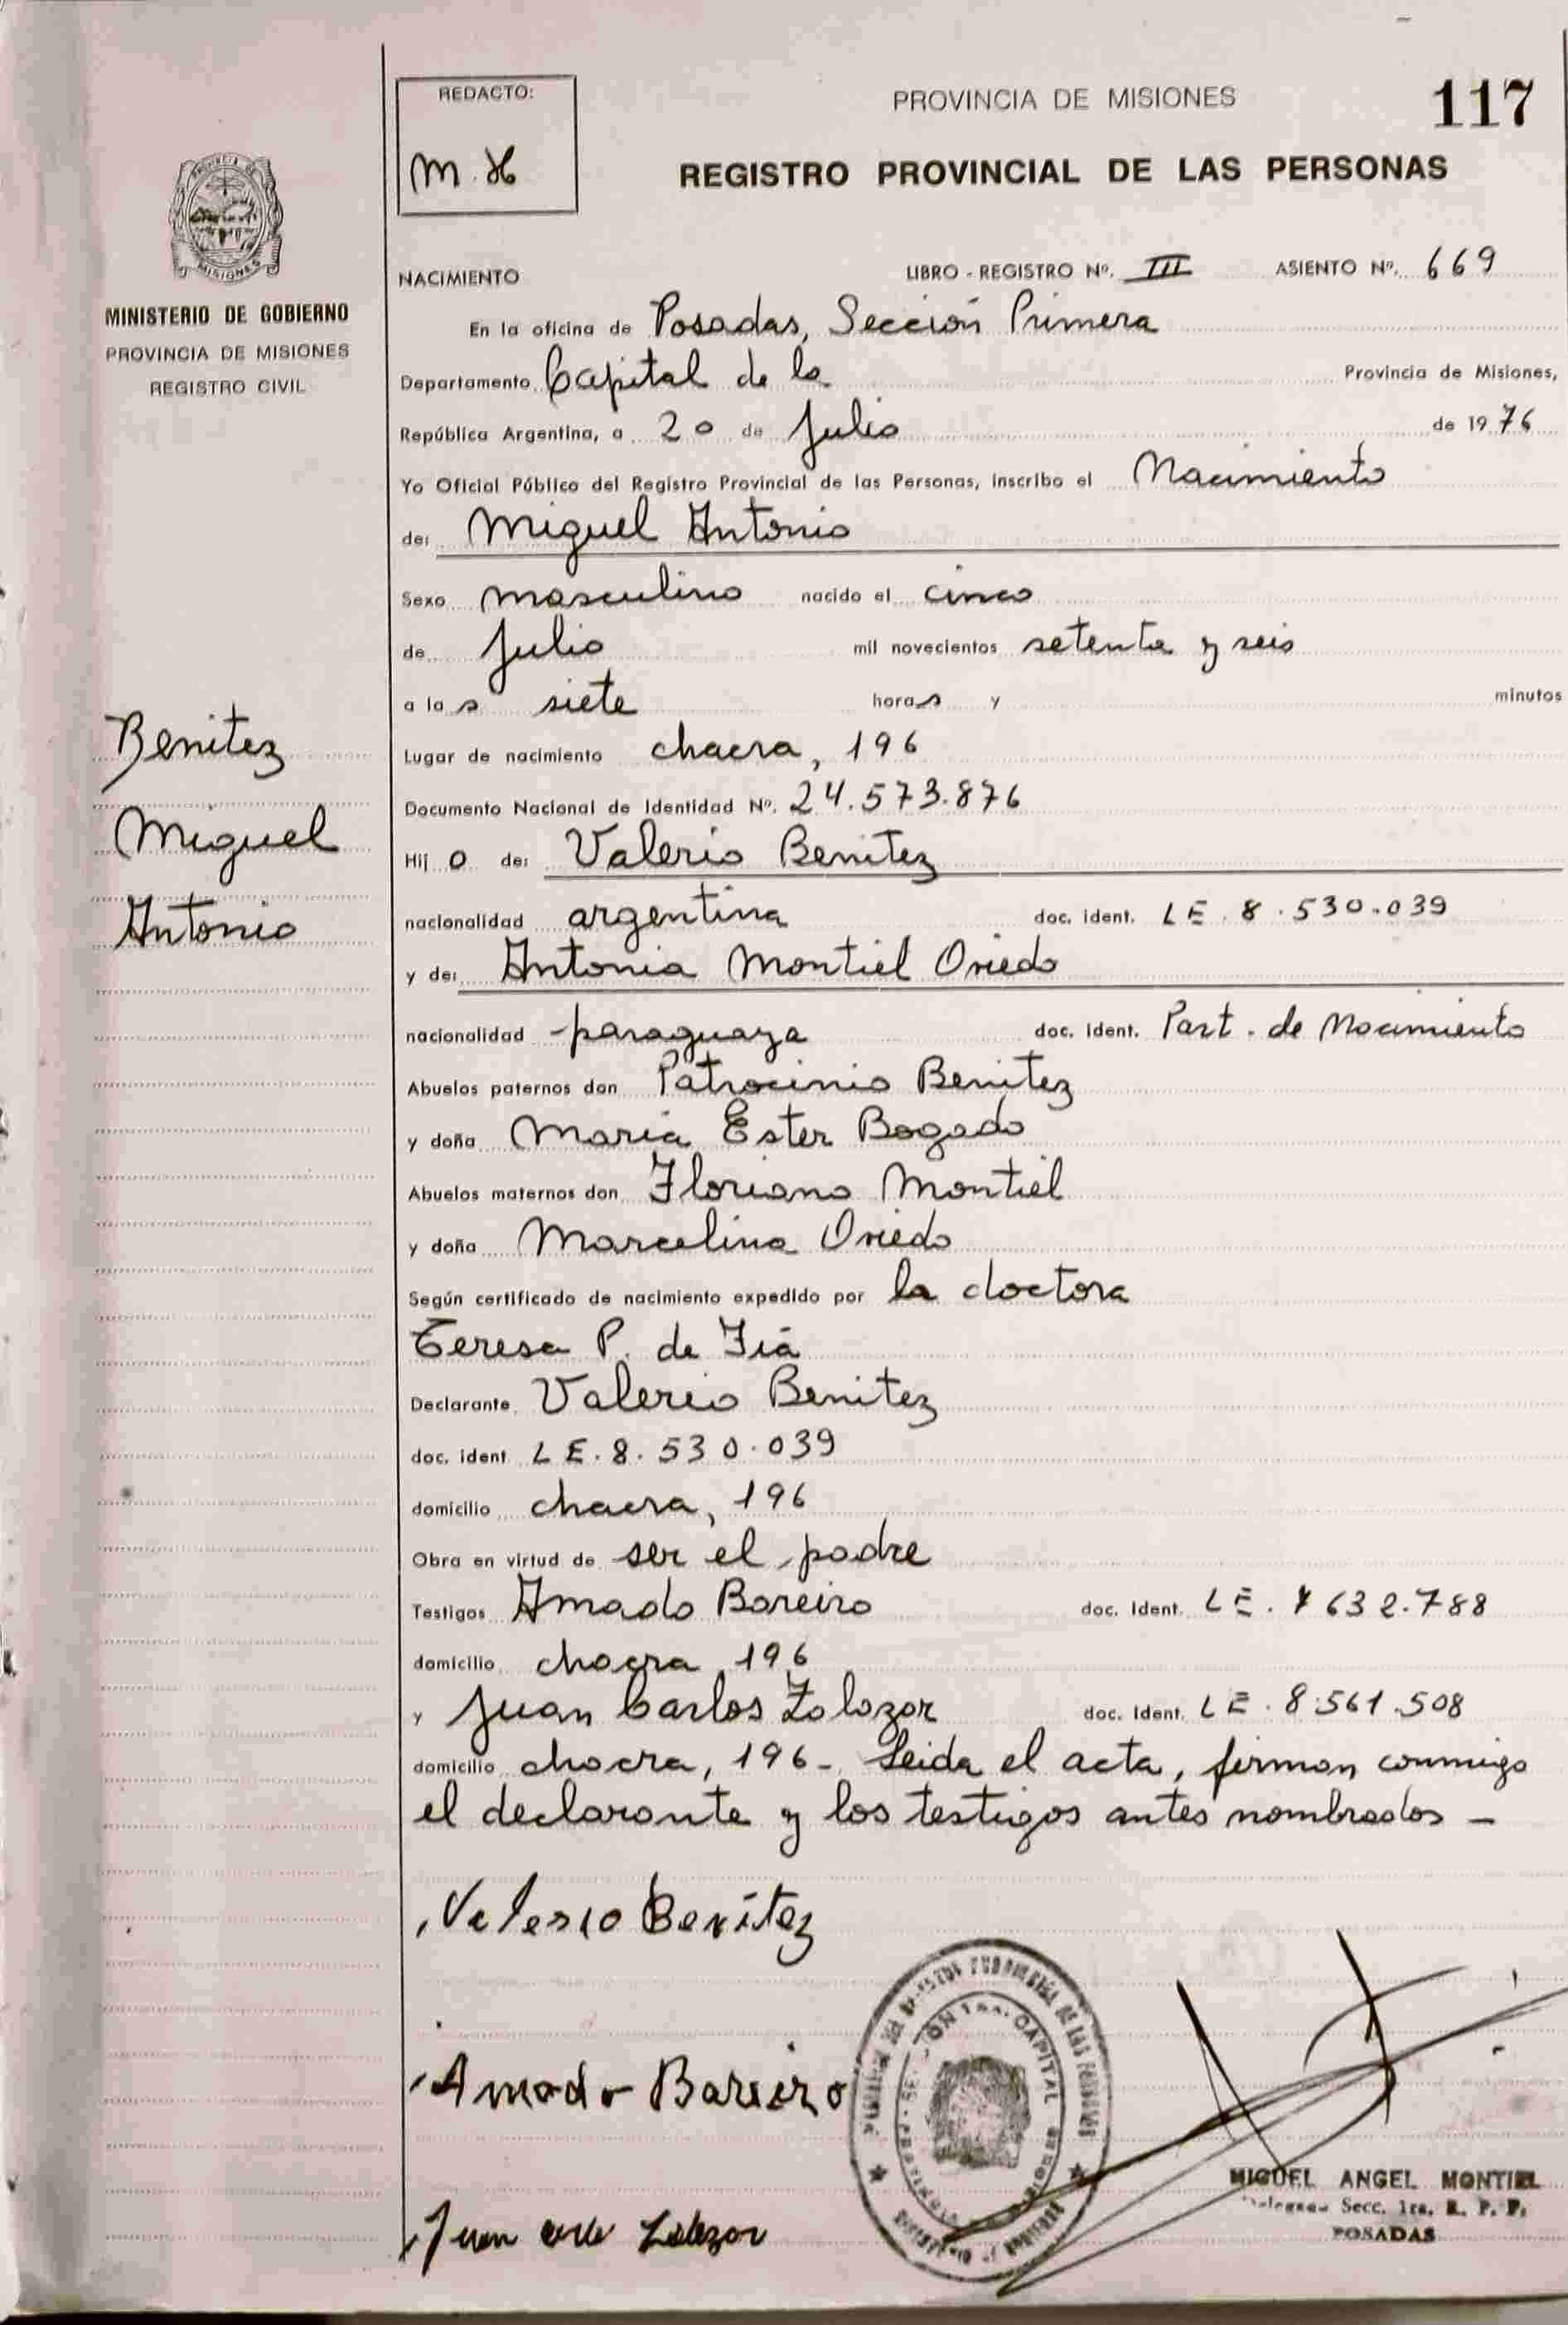 REDACTO:
M.H
PROVINCIA DE MISIONES
117
REGISTRO PROVINCIAL DE LAS PERSONAS
PROVINCIA DE
MISIONES
MINISTERIO DE GOBIERNO
PROVINCIA DE MISIONES
REGISTRO CIVIL
NACIMIENTO LIBRO - REGISTRO Nº. III ASIENTO Nº. 669
En la oficina de Posadas, Sección Primera
Departamento Capital de la Provincia de Misiones,
República Argentina, a 20 de Julio de 1976
Yo Oficial Público del Registro Provincial de las Personas, inscribo el Nacimiento
de: Miguel Antonio
Sexo masculino nacido el cinco
de Julio mil novecientos setenta y seis
a las siete horas y minutos
Lugar de nacimiento chacra, 196
Documento Nacional de Identidad Nº. 24.573.876
Hijo de: Valerio Benitez
nacionalidad argentina doc. ident. LE. 8.530.039
y de: Antonia Montiel Oviedo
nacionalidad paraguaya doc. ident. Part. de Nacimiento
Abuelos paternos don Patrocinio Benitez
y doña Maria Ester Bogado
Abuelos maternos don Floriano Montiel
y doña Marcelina Oviedo
Según certificado de nacimiento expedido por la doctora
Teresa P. de
Declarante Valerio Benitez
doc. ident LE. 8.530.039
domicilio chacra, 196
Obra en virtud de ser el padre
Testigos Amado Bareiro doc. ident. LE. 632.788
domicilio chacra, 196
y Juan Carlos Zalazar doc. ident. LE. 8.561.508
domicilio chacra, 196 - Leida el acta, firman conmigo
el declarante y los testigos antes nombrados -
Benitez
Miguel
Antonio
Valerio Benitez
Amado Bareiro
Juan Zalazar
CAPITAL
MIGUEL ANGEL MONTIEL
Secc. 1ra. R. P. P.
POSADAS